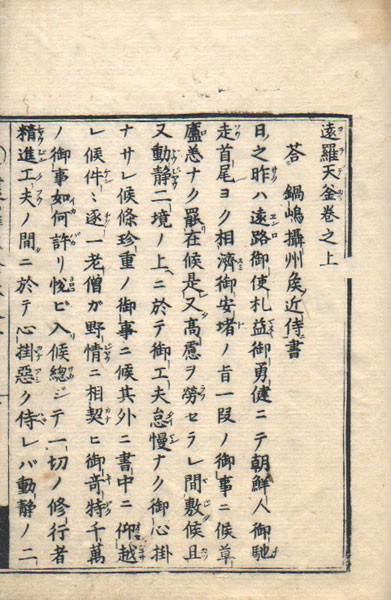 遠羅天釜巻之上
答 鍋嶋攝州矦近侍書
日之昨ハ遠路御使札益御勇健ニテ朝鮮人御馳
走首尾ヨク相濟御安堵ノ旨一段ノ御事ニ候草
廬恙ナク罷在候是又高慮ヲ勞セラレ間敷候且
又動静二境ノ上ニ於テ御工夫怠慢ナク御心掛
ナサレ候條珍重ノ御事ニ候其外書中ニ仰越
レ候件〻逐一老僧ガ野情ニ相契ヒ御奇特千萬
ノ御事如何許リ悦ビ入候總ジテ一切ノ修行者
精進工夫ノ間ニ於テ心掛惡ク侍レバ動静ノ二